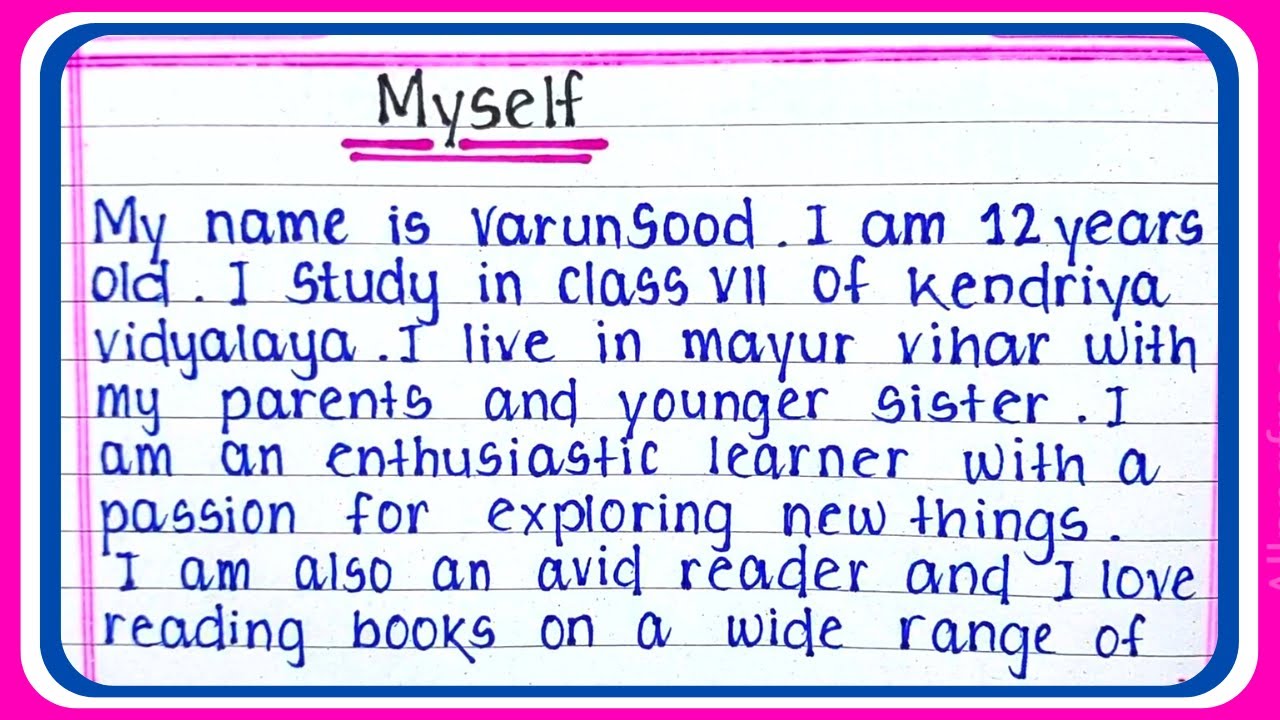 Myself
My name is VarunSood. I am 12 years
old. I Study in class VII of Kendriya
vidyalaya. I live in mayur vihar with
my parents and younger sister. I
am an enthusiastic learner with a
passion for exploring new things.
I am also an avid reader and I love
reading books on a wide range of